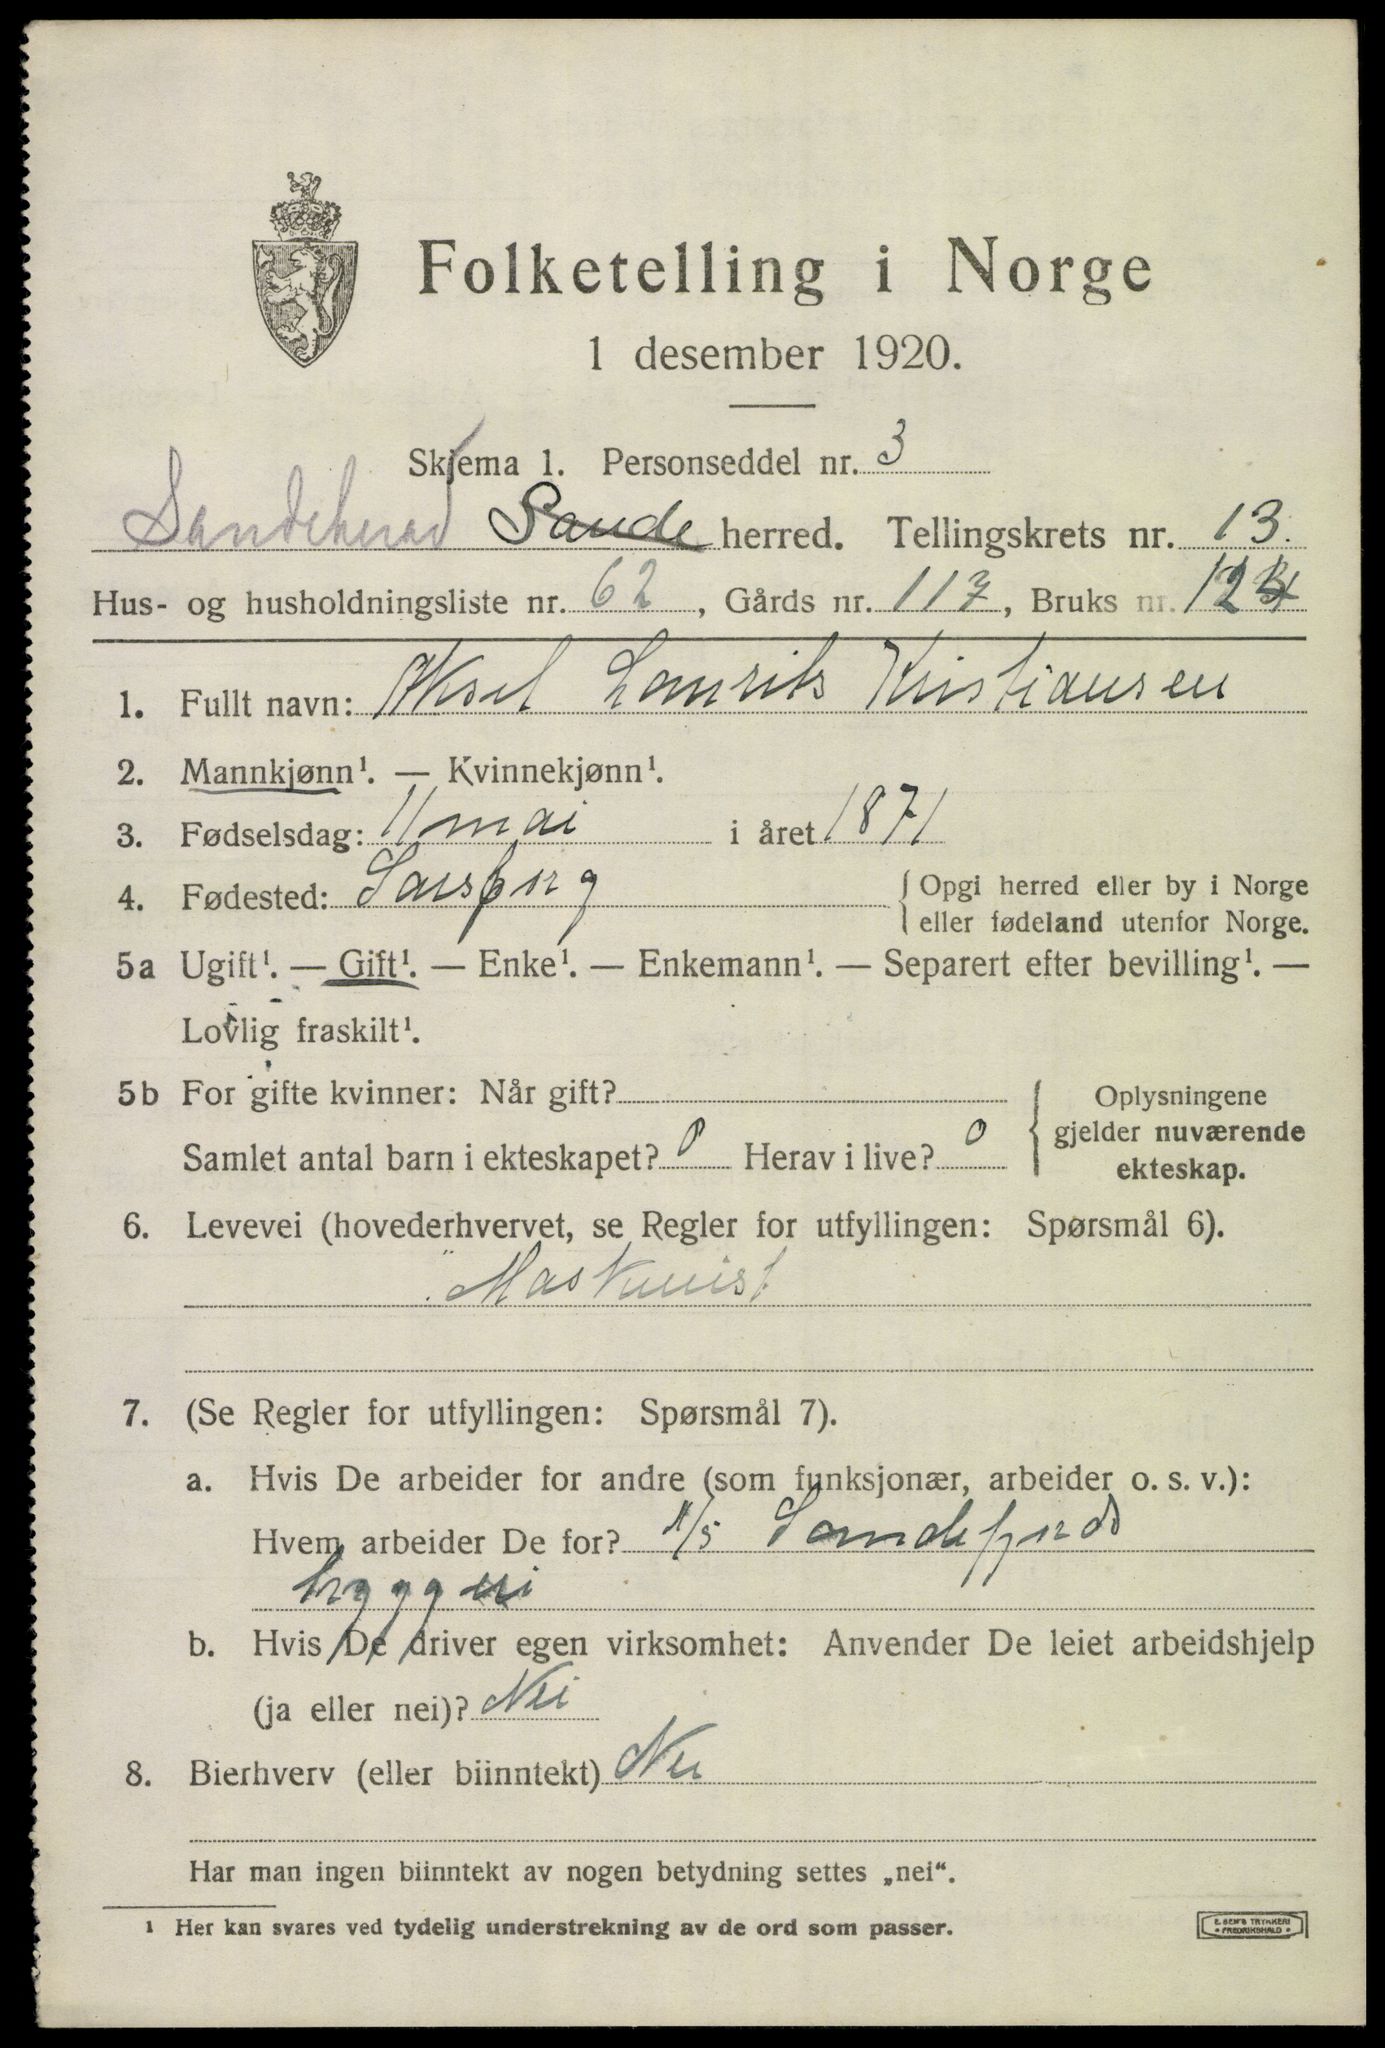 Folketelling i Norge
1 desember 1920.
Skjema 1. Personseddel nr. 3
Sandeherad Sande herred. Tellingskrets nr. 13.
Hus- og husholdningsliste nr. 62, Gårds nr. 117, Bruks nr. 124
1. Fullt navn: Aksel Lauritz Kristiansen
2. Mannkjønn¹. — Kvinnekjønn¹.
3. Fødselsdag: 11 mai i året 1871
4. Fødested: Sarpsborg { Opgi herred eller by i Norge
eller fødeland utenfor Norge.
5a Ugift¹. — Gift¹. — Enke¹. — Enkemann¹. — Separert efter bevilling¹. —
Lovlig fraskilt¹.
5b For gifte kvinner: Når gift?
Samlet antal barn i ekteskapet? 0 Herav i live? 0
{ Oplysningene
gjelder nuværende
ekteskap.
6. Levevei (hovederhvervet, se Regler for utfyllingen: Spørsmål 6).
Maskinist
7. (Se Regler for utfyllingen: Spørsmål 7).
a. Hvis De arbeider for andre (som funksjonær, arbeider o. s. v.):
Hvem arbeider De for? A/S Sandefjords
bryggeri
b. Hvis De driver egen virksomhet: Anvender De leiet arbeidshjelp
(ja eller nei)? Nei
8. Bierhverv (eller biinntekt) Nei
Har man ingen biinntekt av nogen betydning settes „nei“.
¹ Her kan svares ved tydelig understrekning av de ord som passer.
E. SEM'S TRYKKERI
FREDRIKSHALD